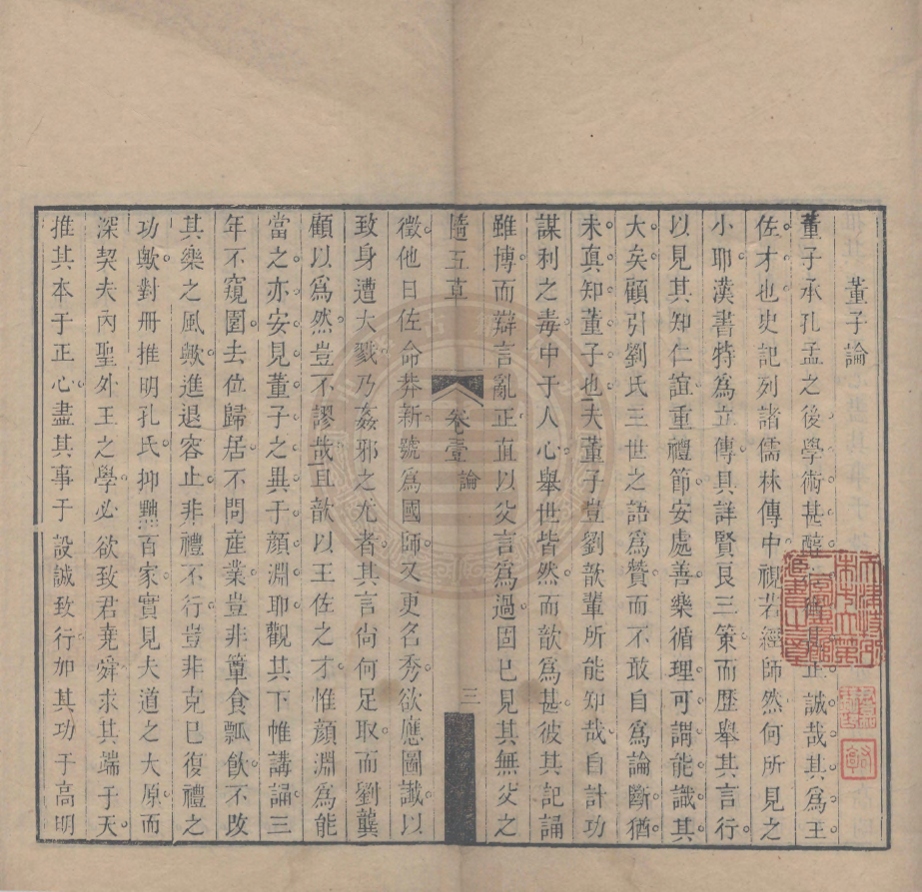 董子論
董子承孔孟之後學術甚醇正誠哉其爲王
佐才也史記列諸儒林傳中視若經師然何所見之
小耶漢書特爲立傳具詳賢良三策而歷舉其言行
以見其知仁誼重禮節安處善樂循理可謂能識其
大矣顧引劉氏三世之語爲贊而不敢自爲論斷猶
未真知董子也夫董子豈劉歆輩所能知哉自計功
謀利之毒中于人心舉世皆然而歆爲甚彼其記誦
雖博而辯言亂正直以父言爲過固已見其無父之
隨五草
卷壹 論
三
徵他日佐命莽新號爲國師又更名秀欲應圖讖以
致身遭大戮乃姦邪之尤者其言尙何足取而劉龔
顧以爲然豈不謬哉且歆以王佐之才惟顏淵爲能
當之亦安見董子之異于顏淵耶觀其下帷講誦三
年不窺園去位歸居不問產業豈非簞食瓢飲不改
其樂之風歟進退容止非禮不行豈非克已復禮之
功歟對冊推明孔氏抑黜百家實見夫道之大原而
深契夫內聖外王之學必欲致君堯舜求其端于天
推其本于正心盡其事于設誠致行加其功于高明